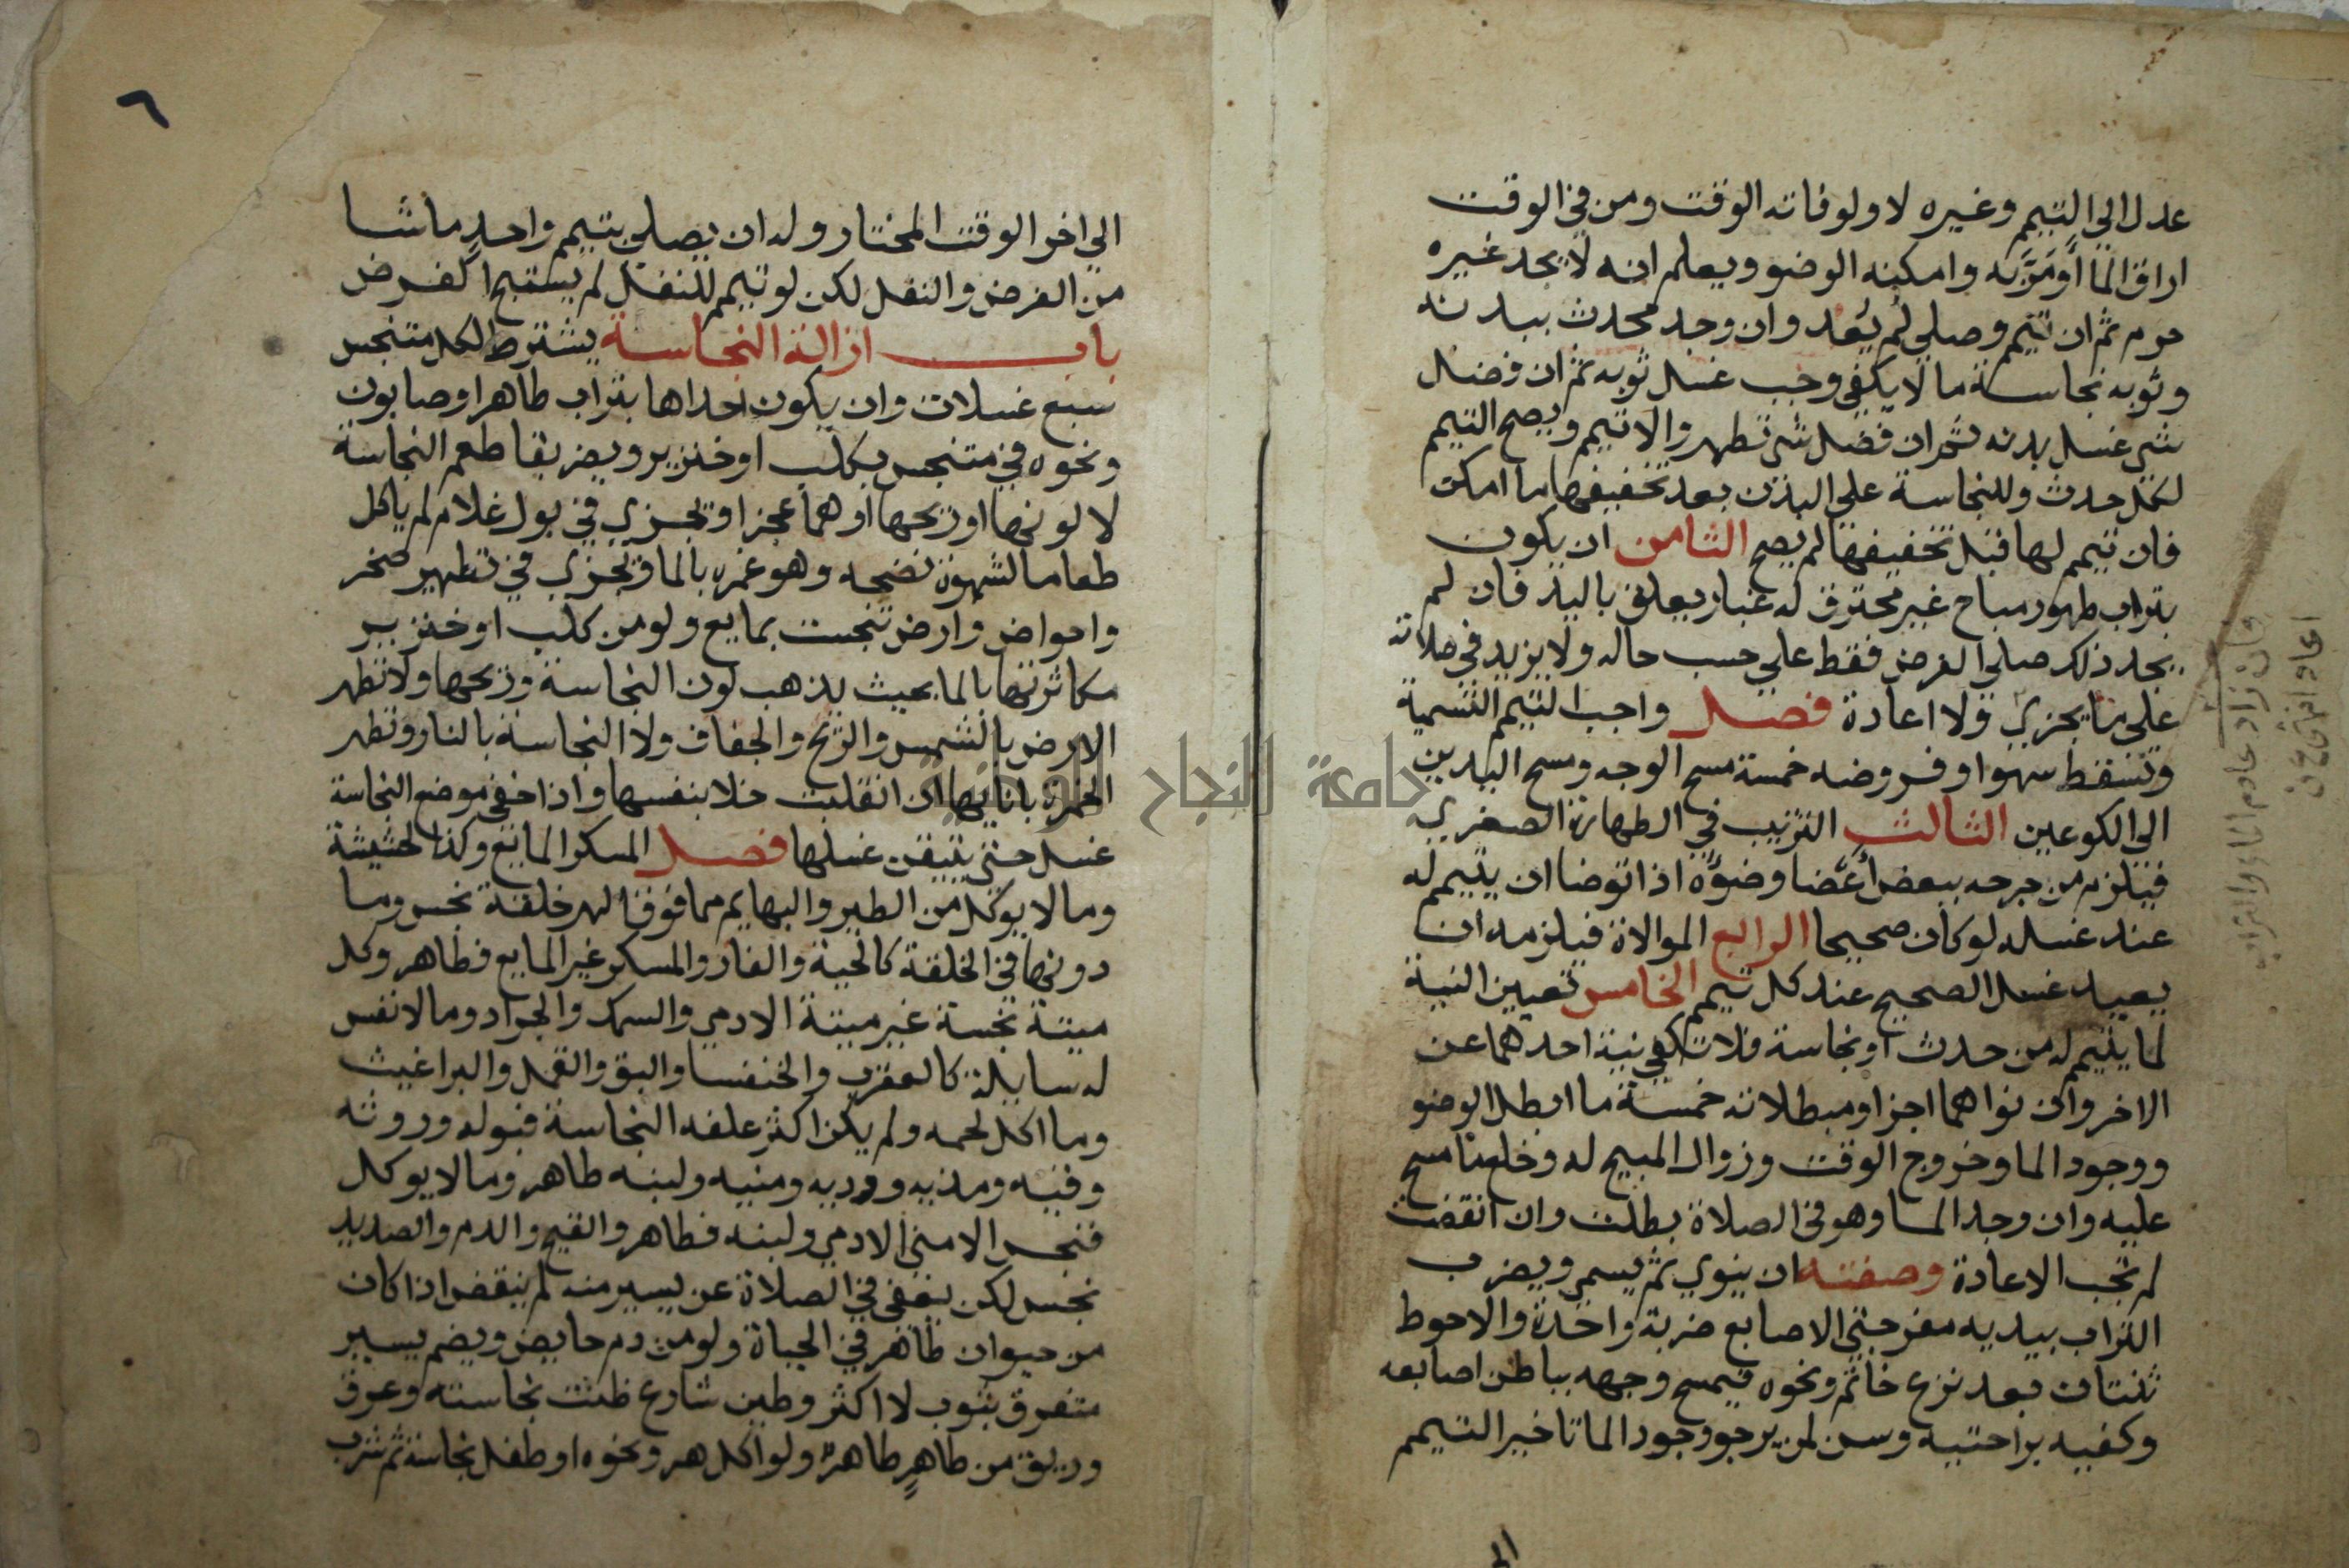 عدل الي التيمم وغيره لا ولو فاته الوقت ومن في الوقت
اراق الما أو مَرَّ به وامكنه الوضو ويعلم انه لا يجد غيره
حرم ثم ان تيمم وصلي لم يُعد وان وجد محدث ببدنه
وثوبه نجاسة ما لا يكفي وجب غسل ثوبه ثم ان فضل
شي غسل بدنه ثم ان فضل شي تطهر والا تيمم ويصح التيمم
لكل حدث وللنجاسة علي البدن بعد تخفيفها ما امكن
فان تيمم لها قبل تخفيفها لم يصح الثامن ان يكون
بتراب طهور مباح غير محترق له غبار يعلق باليد فان لم
يجد ذلك صلي الفرض فقط علي حسب حاله ولا يزيد في صلاته
علي ما يجزي ولا اعادة فصل واجب التيمم التسمية
وتسقط سهوا وفروضه خمسة مسح الوجه ومسح اليدين
الي الكوعين الثالث الترتيب في الطهارة الصغري
فيلزم من جرحه ببعض أعضا وضوَّه اذا توضا ان يتيمم له
عند غسله لو كان صحيحا الرابع الموالاة فيلزمه ان
يعيد غسل الصحيح عند كل تيمم الخامس تعيين النية
لما يتيمم له من حدث او نجاسة فلا تكفي نية احدهما عن
الاخر وان نواهما اجزا ومبطلاته خمسة ما ابطل الوضو
ووجود الما وخروج الوقت وزوال المبيح له وخلع ما مسح
عليه وان وجد الما وهو في الصلاة بطلت وان انقضت
لم تجب الاعادة وصفته ان ينوي ثم يسمي ويضرب
التراب بيديه مفرجتي الاصابع ضربة واحدة والاحوط
ثنتان بعد نزع خاتم ونحوه فيمسح وجهه بباطن اصابعه
وكفيه براحتيه وسن لمن يرجو وجود الما تاخير التيمم
الي
فان زاد عادم الماء والتراب
٦
الي اخر الوقت المختار وله ان يصلي بتيمم واحدٍ ما شا
من الفرض والنفل لكن لو تيمم للنفل لم يستبح الفرض
باب ازالة النجاسة يشترط لكل متنجس
سبع غسلات وان يكون احداها بتراب طاهر او صابون
ونحوه في متنجس بكلب او خنزير ويضر بقا طعم النجاسة
لا لونها او ريحها او هما عجزا ويجزي في بول غلام لم ياكل
طعاما لشهوة نضحه وهو غمره بالما ويجزي في تطهير صخر
واحواض وارض تنجست بمايع ولو من كلب او خنزير
مكاثرتها بالما بحيث يذهب لون النجاسة وريحها ولا تطهر
الارض بالشمس والريح والجفاف ولا النجاسة بالنار وتطهر
الخمرة بانائها ان انقلبت خلا بنفسها واذا خفي موضع النجاسة
غسل حتي يتيقن غسلها فصل المسكر المايع وكذا الحشيشة
وما لا يوكل من الطير والبهايم مما فوق الهر خلقة نجس وما
دونها في الخلقة كالحية والفار والمسكر غير المايع فطاهر وكل
ميتة نجسة غير ميتة الادمي والسمك والجراد وما لا نفس
له سايلة كالعقرب والخنفسا والبق والقمل والبراغيث
وما اكل لحمه ولم يكن اكثر علفه النجاسة فبوله وروثه
وقيه ومذيه ووديه ومنيه ولبنه طاهر وما لا يوكل
فنجس الا مني الادمي ولبنه فطاهر والقيح والدم والصديد
نجس لكن يعفي في الصلاة عن يسير منه لم ينقض اذا كان
من حيوان طاهر في الحياة ولو من دم حايض ويضم يسير
متفرق بثوب لا اكثر وطين شارع ظنت نجاسته وعرق
وريق من طاهرٍ طاهرٌ ولو اكل هر ونحوه او طفل نجاسة ثم شرب
جامعة النجاح الوطنية